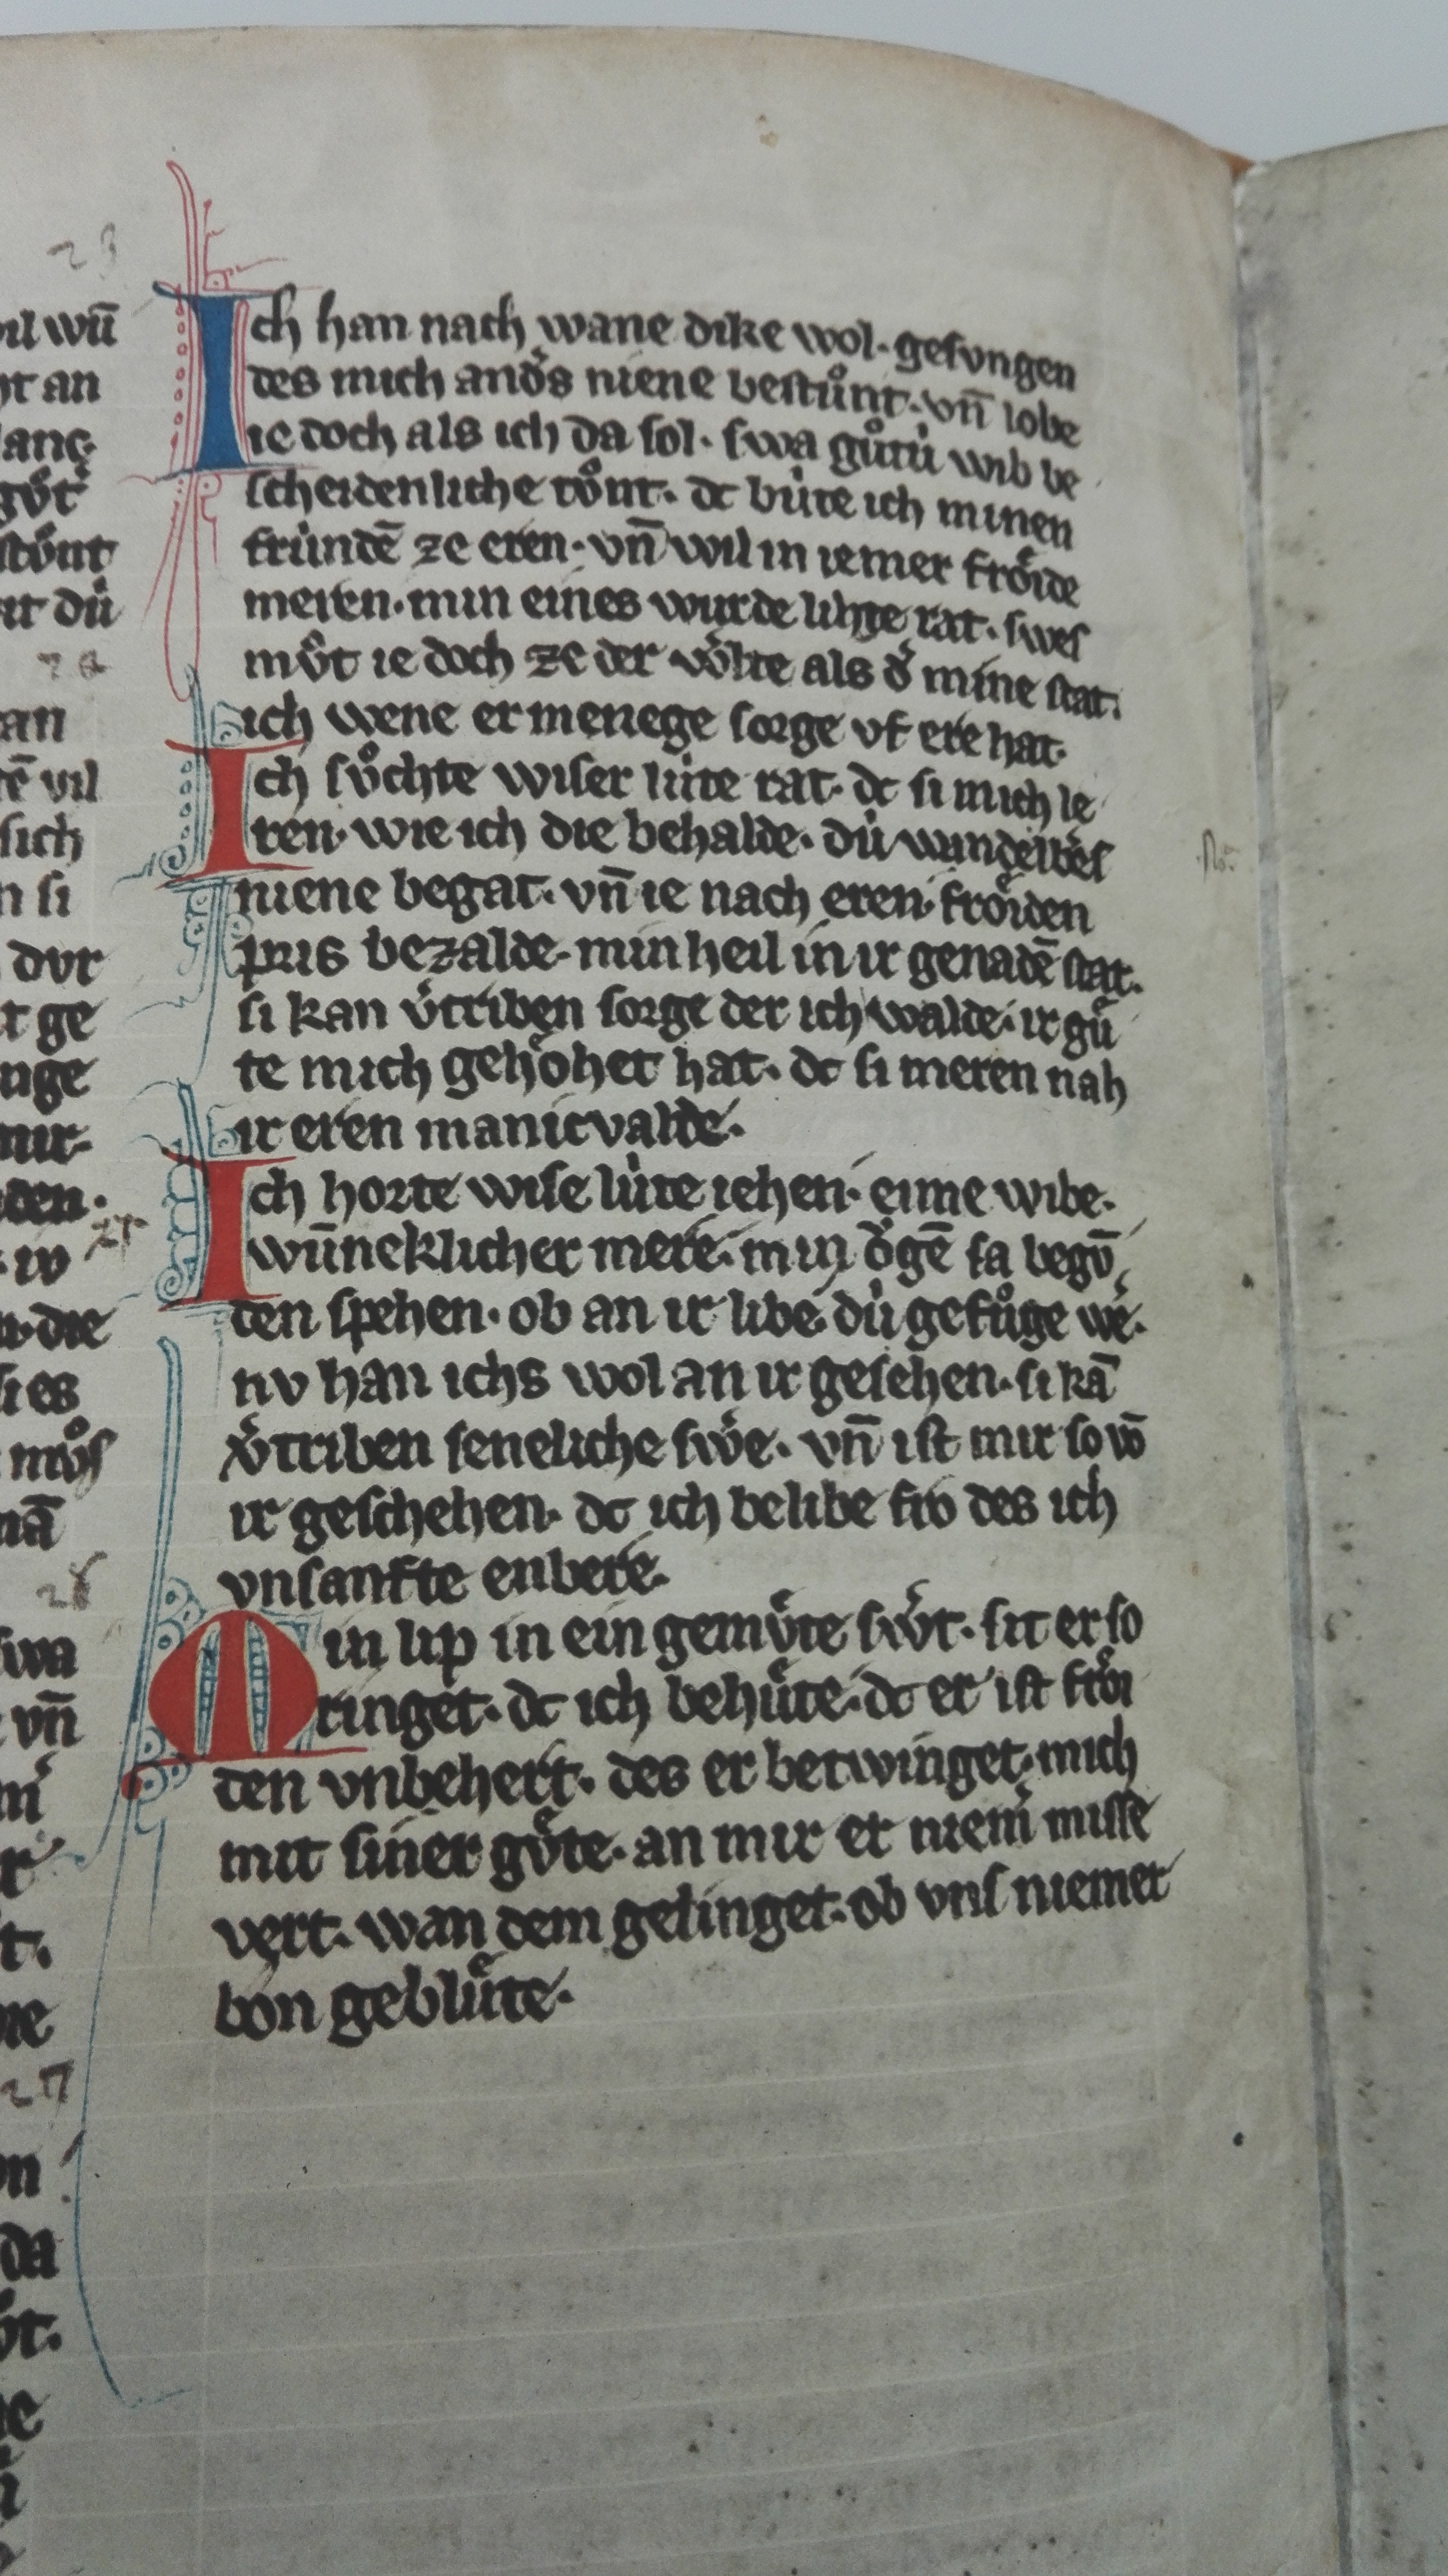 il wū
ht an
lanc.
gv̊t
stv̊nt
it dú
an
tē vil
sich
n si
dvr
t ge
nge
mir
den.
die
si es
mv̊s
nā
swa
vn̄
da
Ich han nach wane dike wol. gesvngen
des mich and͛s niene bestůnt. vn̄ lobe
ie doch als ich da sol. swa gůtú wib be
scheidenliche tv̊nt. dc búte ich minen
frúndē ze eren. vn̄ wil in iemer frőide
meren. min eines wurde lihte rat. swes
mv̊t ie doch ze der wͦlte als d͛ mine stat.
ich wene er menege sorge vf ere hat.
Ich sv̊chte wiser lúte rat. dc si mich le
ren. wie ich die behalde. dú wandelbe͛s
niene begat. vn̄ ie nach eren frőiden
pris bezalde. min heil in ir genadē stat.
si kan v͛triben sorge der ich walde. ir gů
te mich gehőhet hat. dc si meren nah
ir eren manicvalde.
Ich horte wise lúte iehen. eime wibe.
wūneklicher mere. min őgē sa begv̄
den spehen. ob an ir libe. dú gefůge we͛.
nv han ichs wol an ir gesehen. si kā
v͛triben seneliche swe͛. vn̄ ist mir so vō
ir geschehen. dc ich belibe fro des ich
vnsanfte enbere.
Min lip in ein gemv̊te swe͛t. sit er so
ringet. dc ich behůte. dc er ist frői
den vnbehert. des er betwinget. mich
mit siner gv̊te. an mir er niem͛ misse
vert. wan dem gelinget. ob vns niemer
bon geblůte.